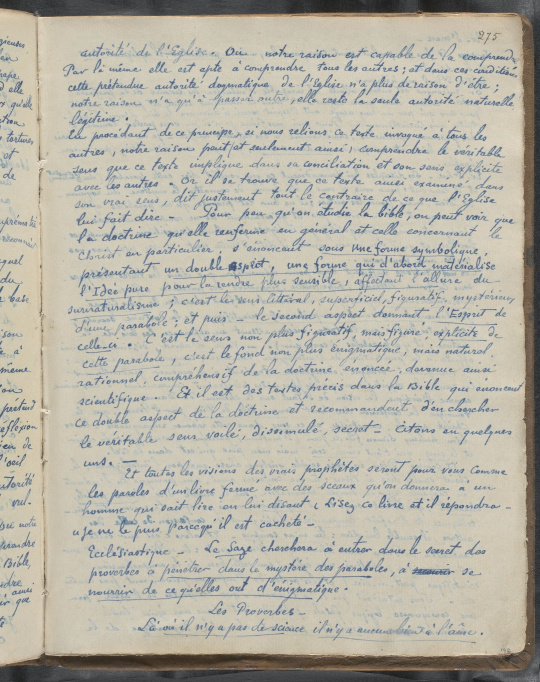 275
autorité de l'Eglise. Oui notre raison est capable de la comprendre
Par là même elle est apte à comprendre tous les autres; et dans ces conditions
cette prétendue autorité dogmatique de l'Eglise n'a plus de raison d'être;
notre raison n'a qu'à passer outre, elle reste la seule autorité naturelle
légitime.
En procédant de ce principe, si nous relions ce texte invoqué à tous les
autres, notre raison peut, et seulement ainsi, comprendre le véritable
sens que ce texte implique dans sa conciliation et son sens explicite
avec les autres. Or il se trouve que ce texte ainsi examiné dans
son vrai sens, dit justement tout le contraire de ce que l'Eglise
lui fait dire - Pour peu qu'on étudie la bible, on peut voir que
la doctrine qu'elle renferme en général et celle concernant le
Christ en particulier, s'énoncent sous une forme symbolique,
présentant un double aspect, une forme qui d'abord matérialise
l'Idée pure pour la rendre plus sensible, affectant l'allure du
surnaturalisme; c'est le sens littéral, superficiel, figuratif, mystérieux,
d'une parabole; et puis - le second aspect donnant l'Esprit de
celle-ci. C'est le sens non plus figuratif, mais figuré explicite de
cette parabole, c'est le fond non plus énigmatique, mais naturel,
rationnel, compréhensif de la doctrine énoncée, devenue ainsi
scientifique. - Et il est des textes précis dans la Bible qui énoncent
ce double aspect de la doctrine et recommandent d'en chercher
le véritable sens voilé, dissimulé, secret - Citons en quelques
uns. -
Et toutes les visions des vrais prophètes seront pour vous comme
les paroles d'un livre fermé avec des sceaux qu'on donnera à un
homme qui sait lire en lui disant; Lisez ce livre et il répondra -
je ne le puis parcequ'il est cacheté -
Ecclésiastique - Le Sage cherchera à entrer dans le secret des
proverbes à pénétrer dans le mystère des paraboles, à se
nourrir de ce qu'elles ont d'énigmatique.
Les Proverbes -
Là où il n'y a pas de science il n'y a aucun bien à l'âme.